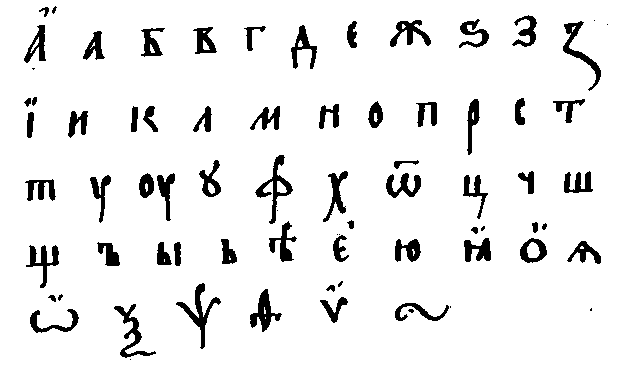 А҆̈ А Б В Г Д Є Ж Ѕ З Ꙁ
Ї И К Л М Н О П Р С Т
т Ѵ ОѴ Ꙋ Ф Х Ѿ Ц Ч Ш
Щ Ъ Ы Ь Ѣ Є҆ Ю Ꙗ̈ Ӧ Ѧ
Ѡ̈ Ѯ Ѱ Ѳ Ѵ̈ ~